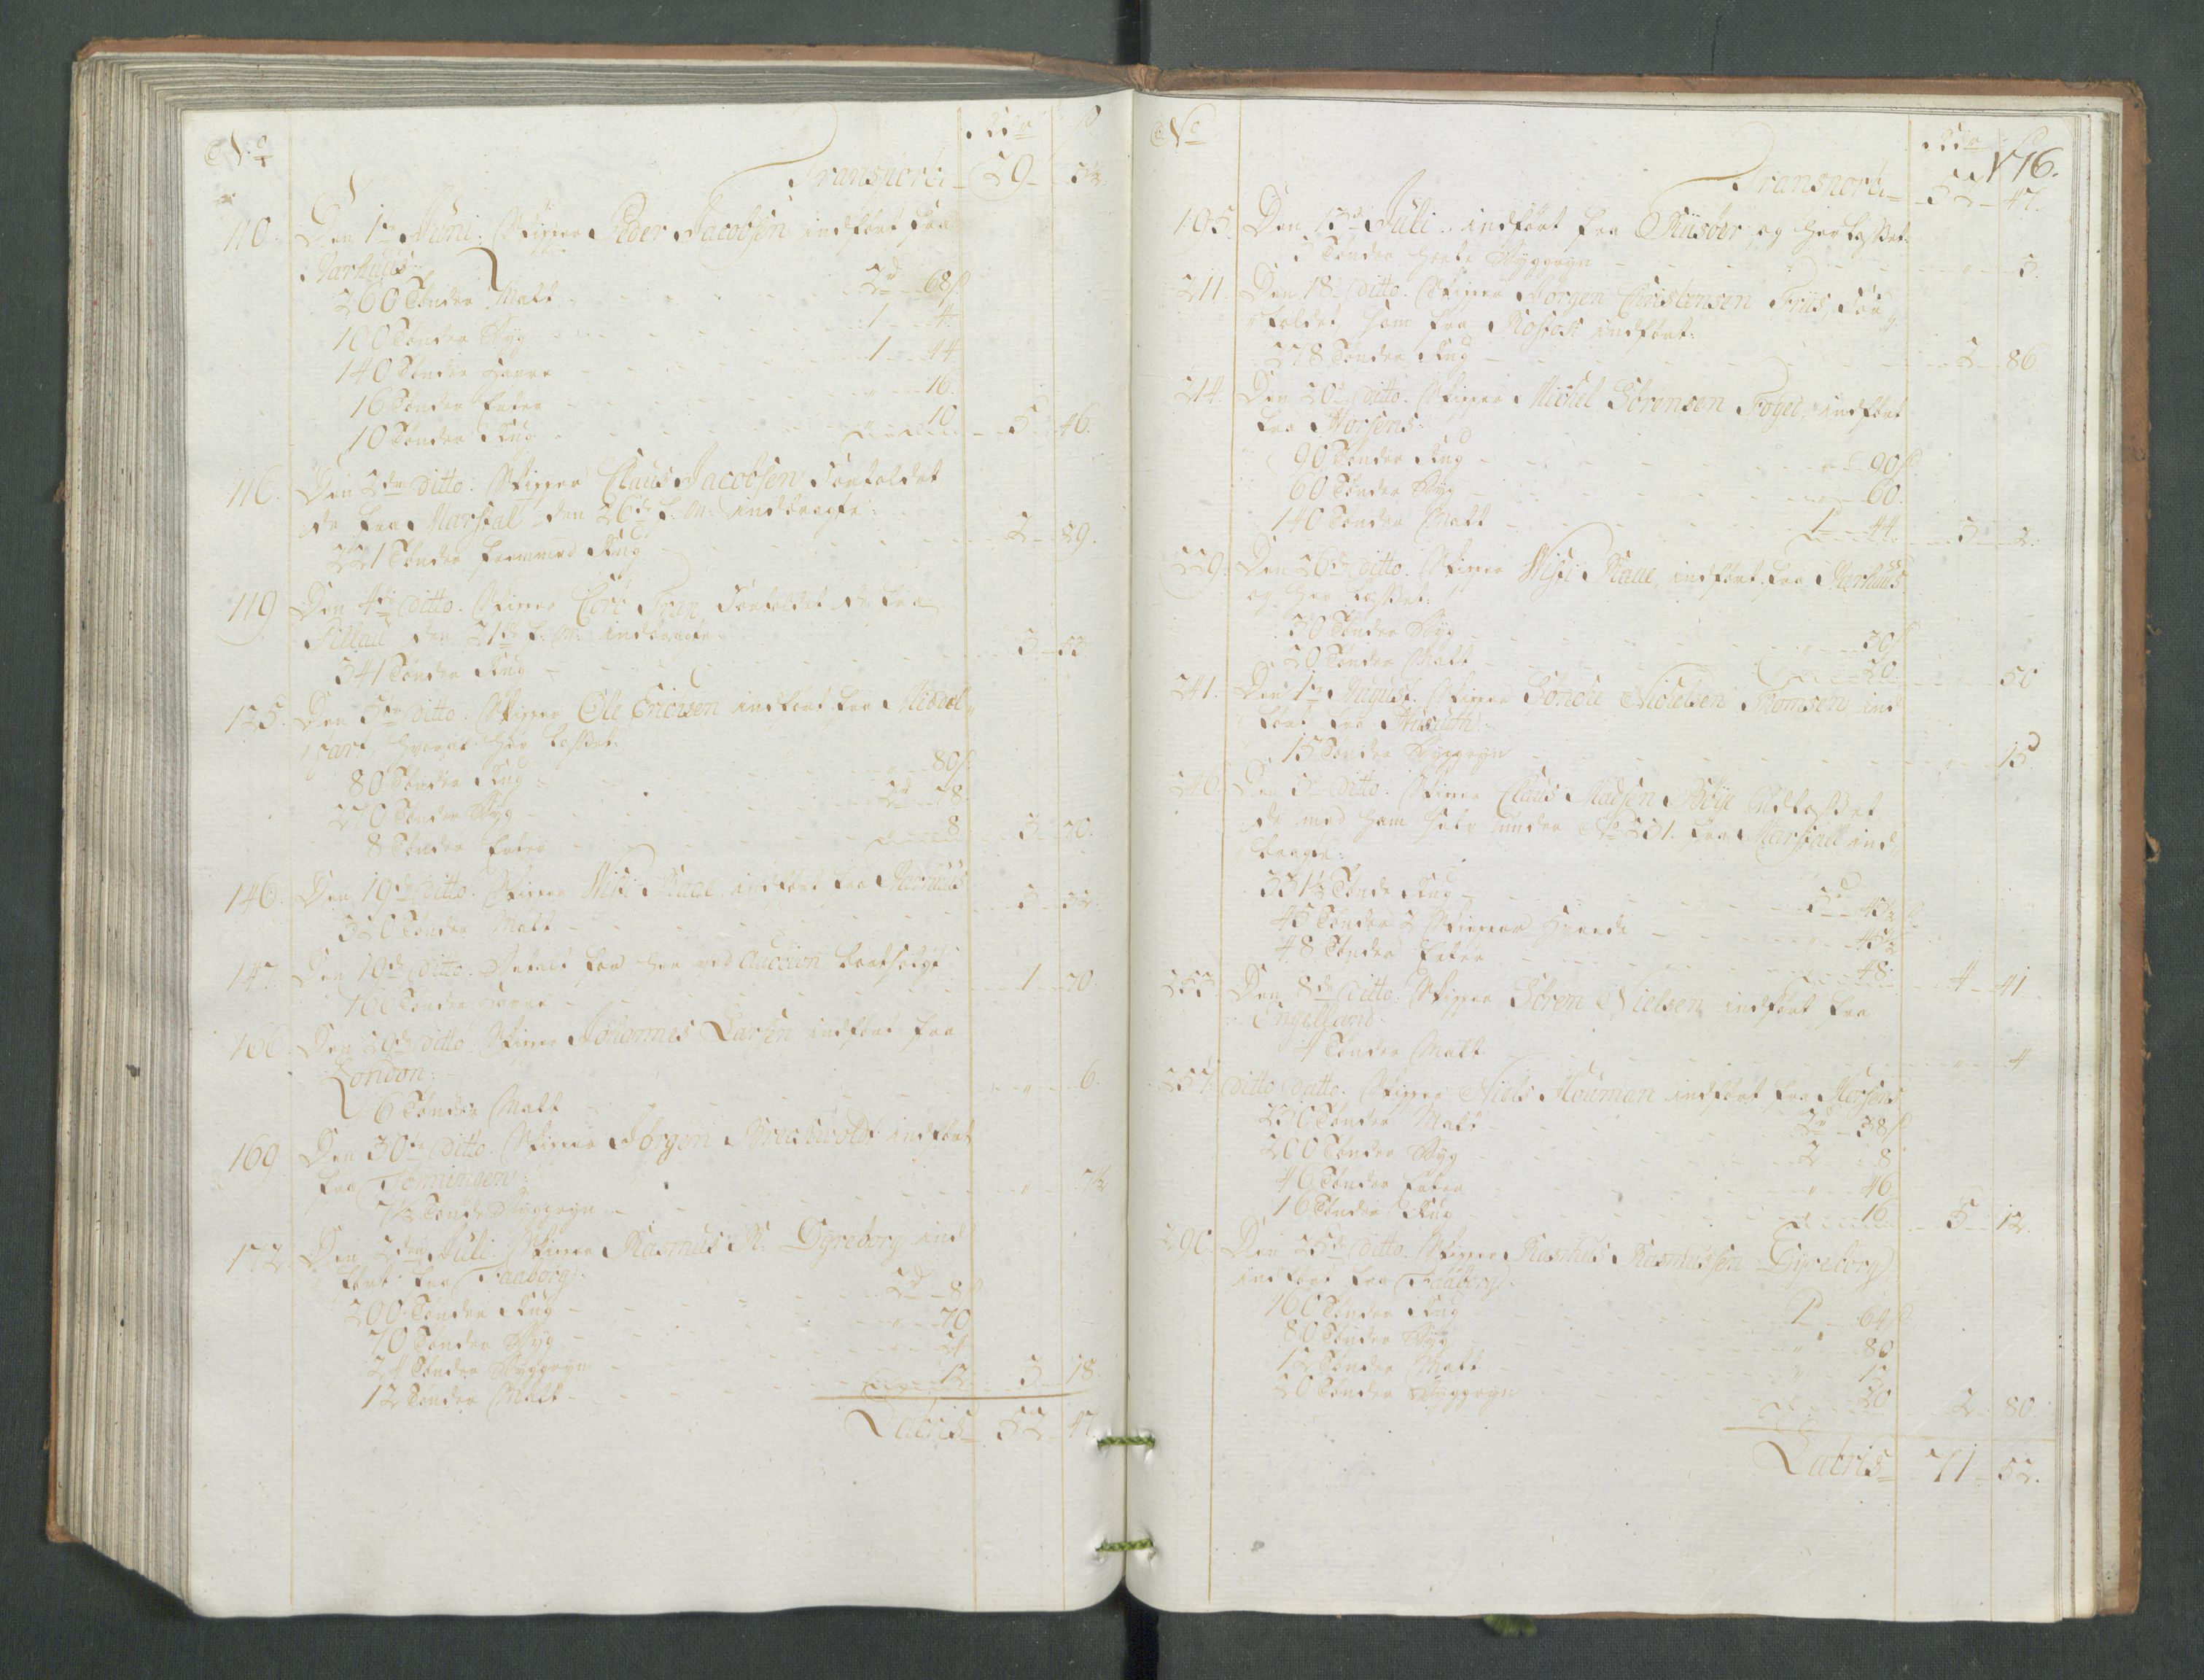 No
Rdr ß
Transport 29 - 5½
110. Den 1te Juni. Skipper Peder Jacobsen indført fra
Aarhuus:
260 Tønder Malt - 2rd - 68ß
100 Tønder Byg - 1 - 4
140 Tønder Havre - 1 - 44
16 Tønder Erter - " - 16.
10 Tønder Rug - " - 10. - 5 - 46.
116. Den 2den Ditto. Skipper Claus Jacobsen Fortoldet
de fra Marstal den 26de f. M. indbragte:
221 Tønder fremmed Rug - 2 - 29.
119 Den 4de Ditto. Skipper Cort Fran Fortoldet de fra
Pillau den 21de f. M. indbragte
341 Tønder Rug - 3 - 53
125. Den 5te Ditto. Skipper Ole Ericksen indført fra Middel-
fart hvoraf her losset:
80 Tønder Rug - " - 80ß
270 Tønder Byg - 2rd - 78
8 Tønder Erter - " - 8 - 3 - 70.
146. Den 19de Ditto. Skipper Niss Raae indført fra Aarhuus
320 Tønder Malt - 3 - 32.
147. Den 19de Ditto. Betalt for her ved Auction bortsolgt
166 Tønder Havre - 1 - 70.
166. Den 29de Ditto. Skipper Johannes Larsen indført fra
London:
6 Tønder Malt - " - 6.
169 Den 30te Ditto. Skipper Jørgen indført
fra Tønningen:
7½ Tønde Byggryn - " - 7½
172 Den 2den Juli. Skipper Rasmus R. Dyreborg ind-
ført fra Faaborg:
200 Tønder Rug - 2rd - 8ß
70 Tønder Byg - " - 70
24 Tønder Byggryn - " - 24
12 Tønder Malt - " - 12. - 3 - 18
Latris 52 - 47.
No
Rdr ß
176.
Transport 52 - 47.
195. Den 13de Juli. indført fra Riisøer og her losset:
3 Tønder hele Byggryn - " - 3.
211. Den 18de Ditto. Skipper Jørgen Christensen Friis, For-
toldet, som fra Rostok indført:
278 Tønder Rug - 2 - 86
214. Den 20de Ditto. Skipper Michel Sørensen Foged, indført
fra Horsens:
90 Tønder Rug - " - 90ß
60 Tønder Byg - " - 60.
140 Tønder Malt - 1 - 44. - 3 - 2.
229. Den 26de Ditto. Skipper Niss Raae, indført fra Aarhuus
og her losset:
30 Tønder Byg - " - 30ß
20 Tønder Malt - " - 20. - " - 50
241. Den 1te August. Skipper Nickelsen Thomsen ind-
ført fra Husum:
15 Tønder Byggryn - " - 15.
246. Den 5te Ditto. Skipper Claus Madsen Udlosset
de med ham selv under No 231. fra Marstall ind-
bragte:
331½ Tønde Rug - 3rd - 43½ß
45 Tønder 2 Skipper Hvede - " - 45½
48 Tønder Erter - " - 48. - 4 - 41
253. Den 8de Ditto. Skipper Søren Nielsen indført fra
Engelland
4 Tønder Malt - " - 4
257. Ditto Ditto. Skipper Niels Houman indført fra Horsens
230 Tønder Malt - 2rd - 38ß
200 Tønder Byg - 2 - 8
46 Tønder Erter - " - 46
16 Tønder Rug - " - 16. - 5 - 12.
290. Den 25de Ditto. Skipper Rasmus Rasmussen Dyreborg
indført fra Faaborg:
160 Tønder Rug - 1rd - 64ß
80 Tønder Byg - " - 80
12 Tønder Malt - " - 12
20 Tønder Byggryn - " - 20 - 2 - 80
Latris 71 - 52.